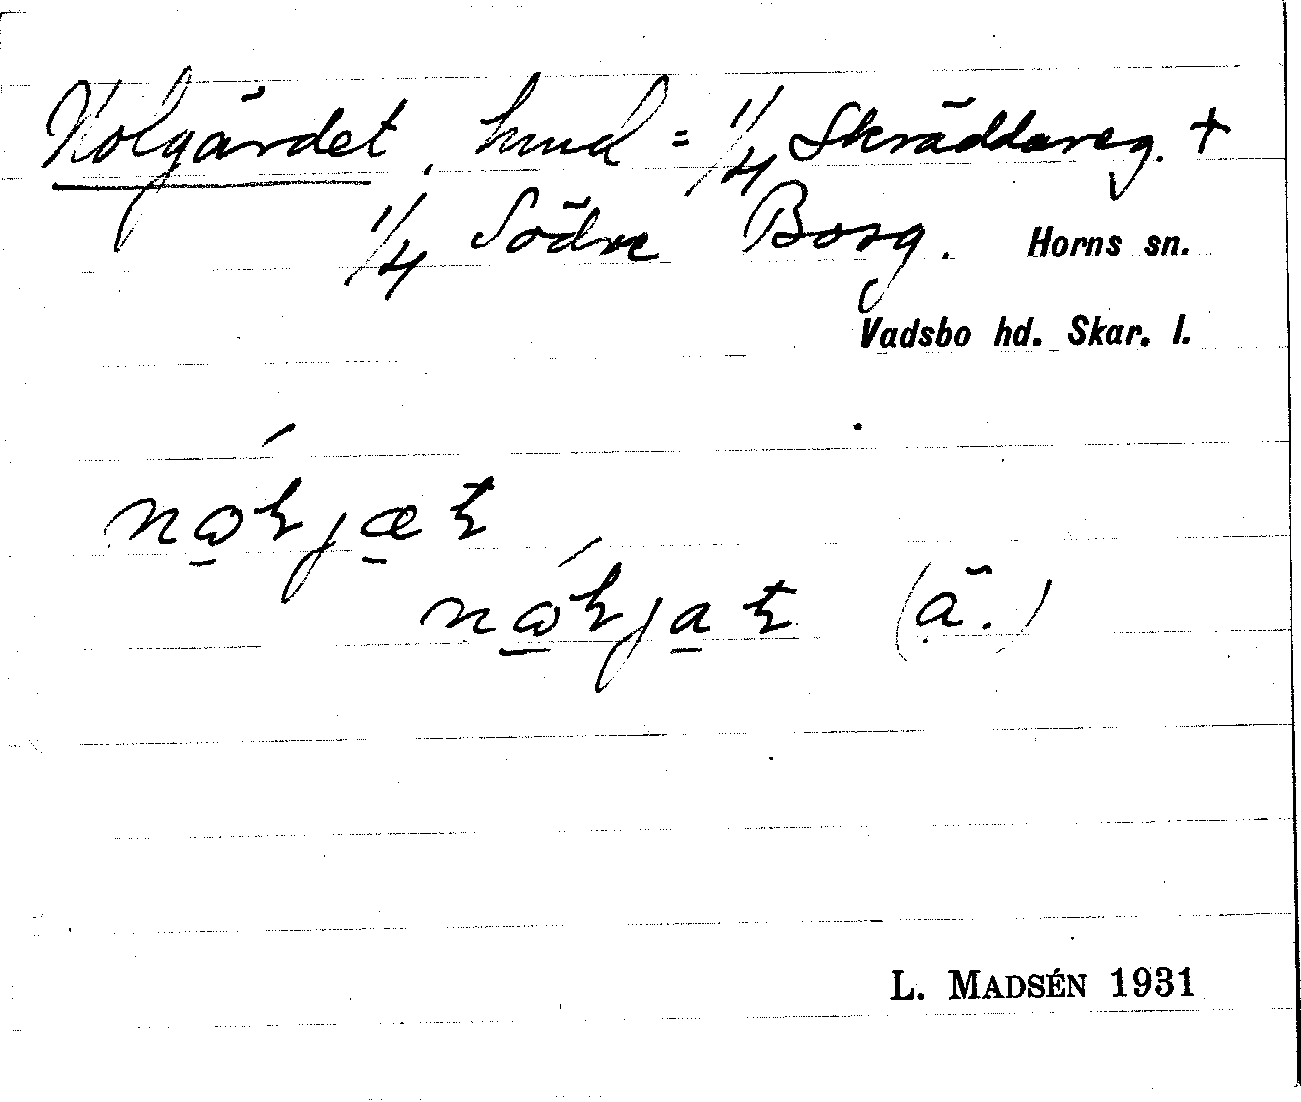 Nolgärdet, hmd = 1/4 Skräddareg. +
1/4 Södre Borg. Horns sn.
Vadsbo hd. Skar. l.
(ä.)
L. MADSÉN 1931